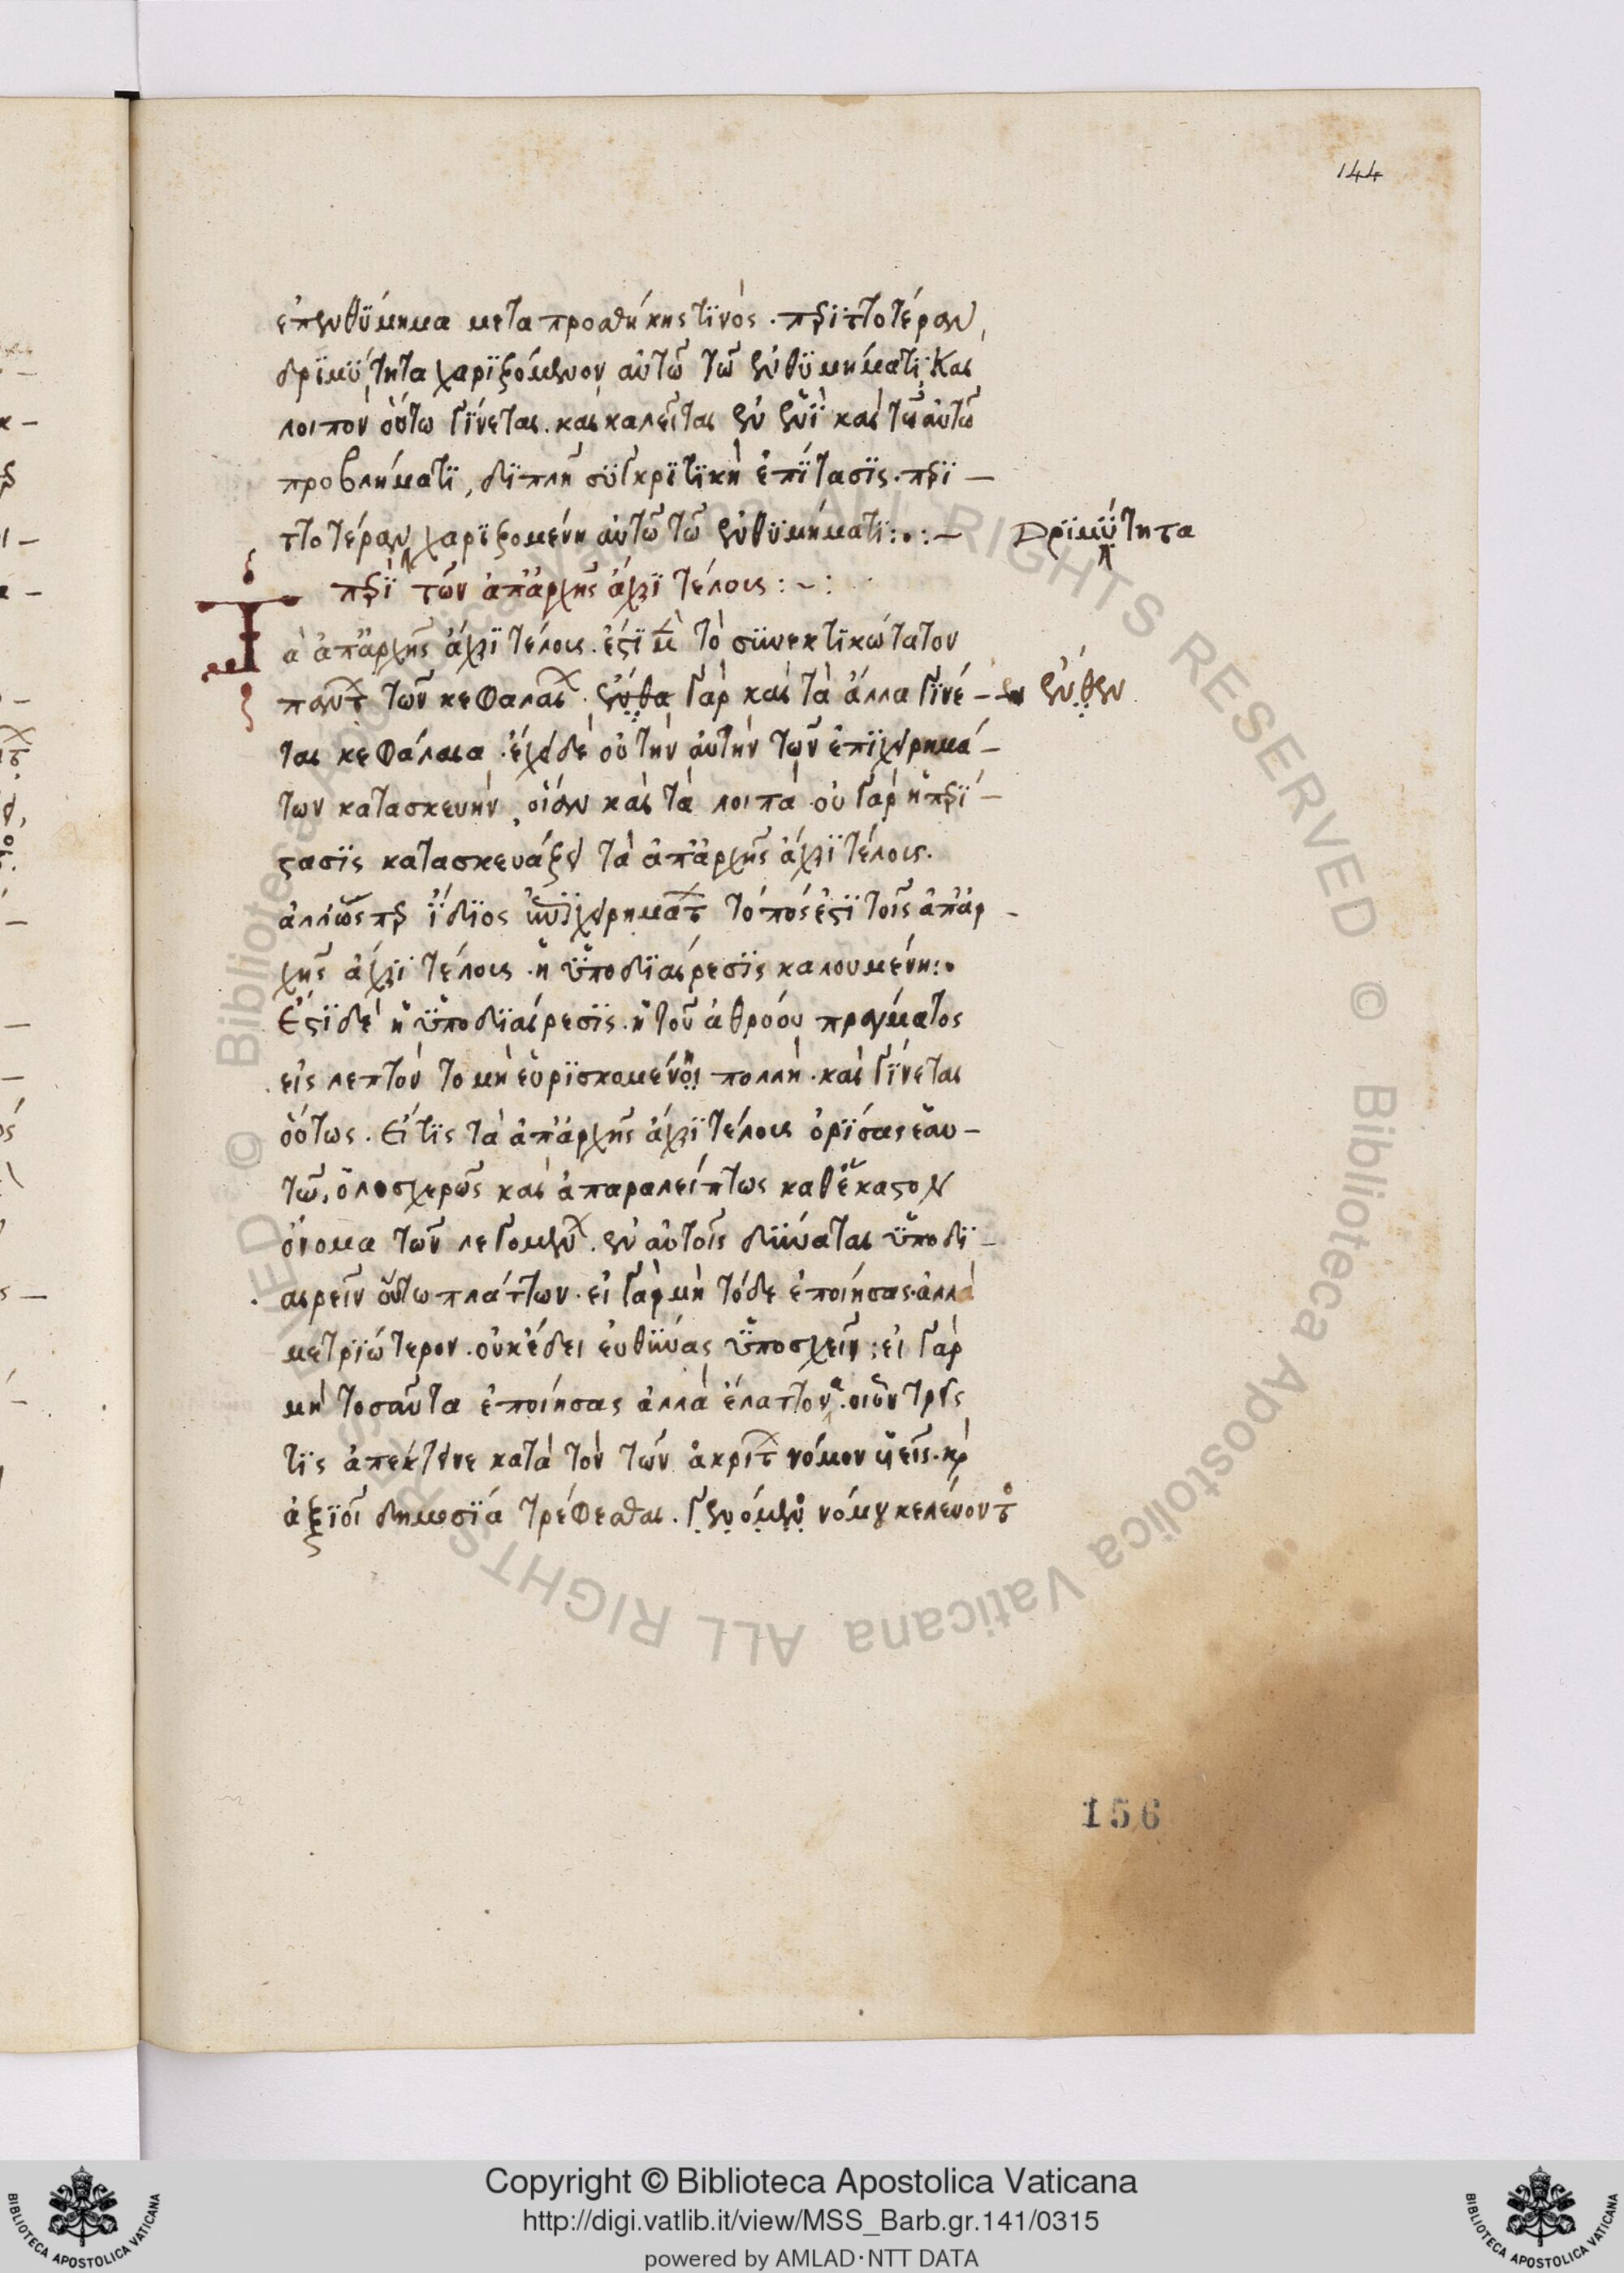 144
ἐπενθύμημα μετα προσθήκης τινὸς · περιττοτέραν
δριμύτητα χαριζόμενον αὐτῶ τῶ ἐνθυμήματι · Και
λοιπὸν οὕτω γίνεται · και καλεῖται ἐν ἑνὶ καὶ τῶ αὐτῶ
προβλήματι, διπλῆ συγκριτικὴ ἐπίτασις · περι –
ττοτέραν χαριζομένη αὐτῶ τῶ ἐνθυμήματι : · : – δριμύτητα
περὶ τῶν ἀπ' ἀρχῆς ἄχρι τέλους : ~ :
Τὰ ἀπ' ἀρχῆς ἄχρι τέλους · ἐστὶ μὲν τὸ συνεκτικώτατον
πάντων τῶν κεφαλαίων · ἔνθα γὰρ καὶ τὰ ἄλλα γίνε – ἔνθεν
ται κεφάλαια · ἔχει δὲ οὐ τὴν αὐτὴν τῶν ἐπιχειρημά –
των κατασκευὴν, οἵαν καὶ τὰ λοιπὰ · οὐ γὰρ ἡ περί –
στασις κατασκευάζει τὰ ἀπ' ἀρχῆς ἄχρι τέλους ·
ἄλλως περ ἴδιος ἐπιχειρημάτων τόπος ἐστὶ τοῖς ἀπ' ἀρ –
χῆς ἄχρι τέλους · ἡ ὑποδιαίρεσις καλουμένη : ·
Ἔστι δὲ ἡ ὑποδιαίρεσις · ἡ τοῦ ἀθρόου πράγματος
εἰς λεπτὸν τομὴ εὑρισκομένοι πολλὴ · καὶ γίνεται
οὕτως · Εἴ τις τὰ ἀπ' ἀρχῆς ἄχρι τέλους ὁρίσας ἑαυ –
τῶ, ὁλοσχερῶς καὶ ἀπαραλείπτως καθ' ἕκαστον
ὄνομα τῶν λεγομένων · ἐν αὐτοῖς δύναται ὑποδι –
αιρεῖν οὕτω πλάττων · εἰ γὰρ μὴ τόδε ἐποίησας · ἀλλὰ
μετριώτερον · οὐκ ἔδει εὐθύνας ὑποσχεῖν ; εἰ γὰρ
μὴ τοσαῦτα ἐποίησας ἀλλὰ ἐλάττονα · οἷον τρεῖς
τις ἀπέκτεινε κατὰ τὸν τῶν ἀκρίτων νόμον
ἀξιοῖ δημοσία τρέφεσθαι · γενομένου νόμου κελεύοντος
156